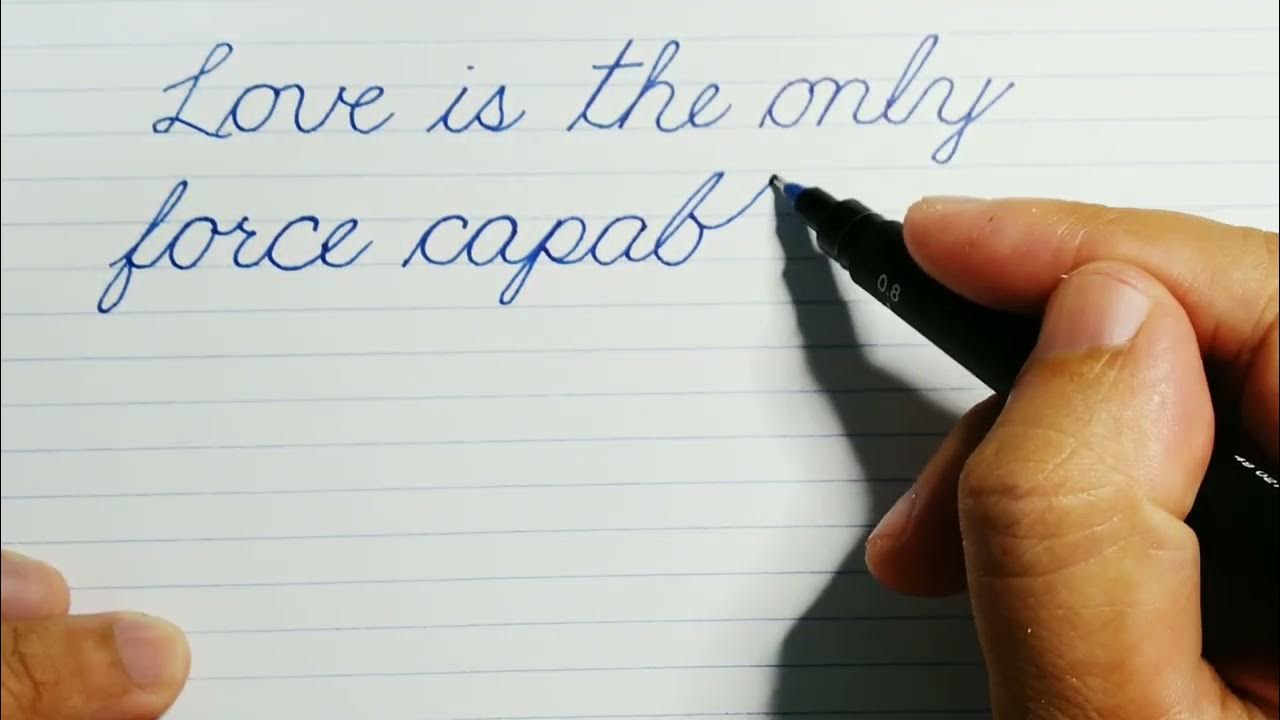 Love is the only
force capab
0.8